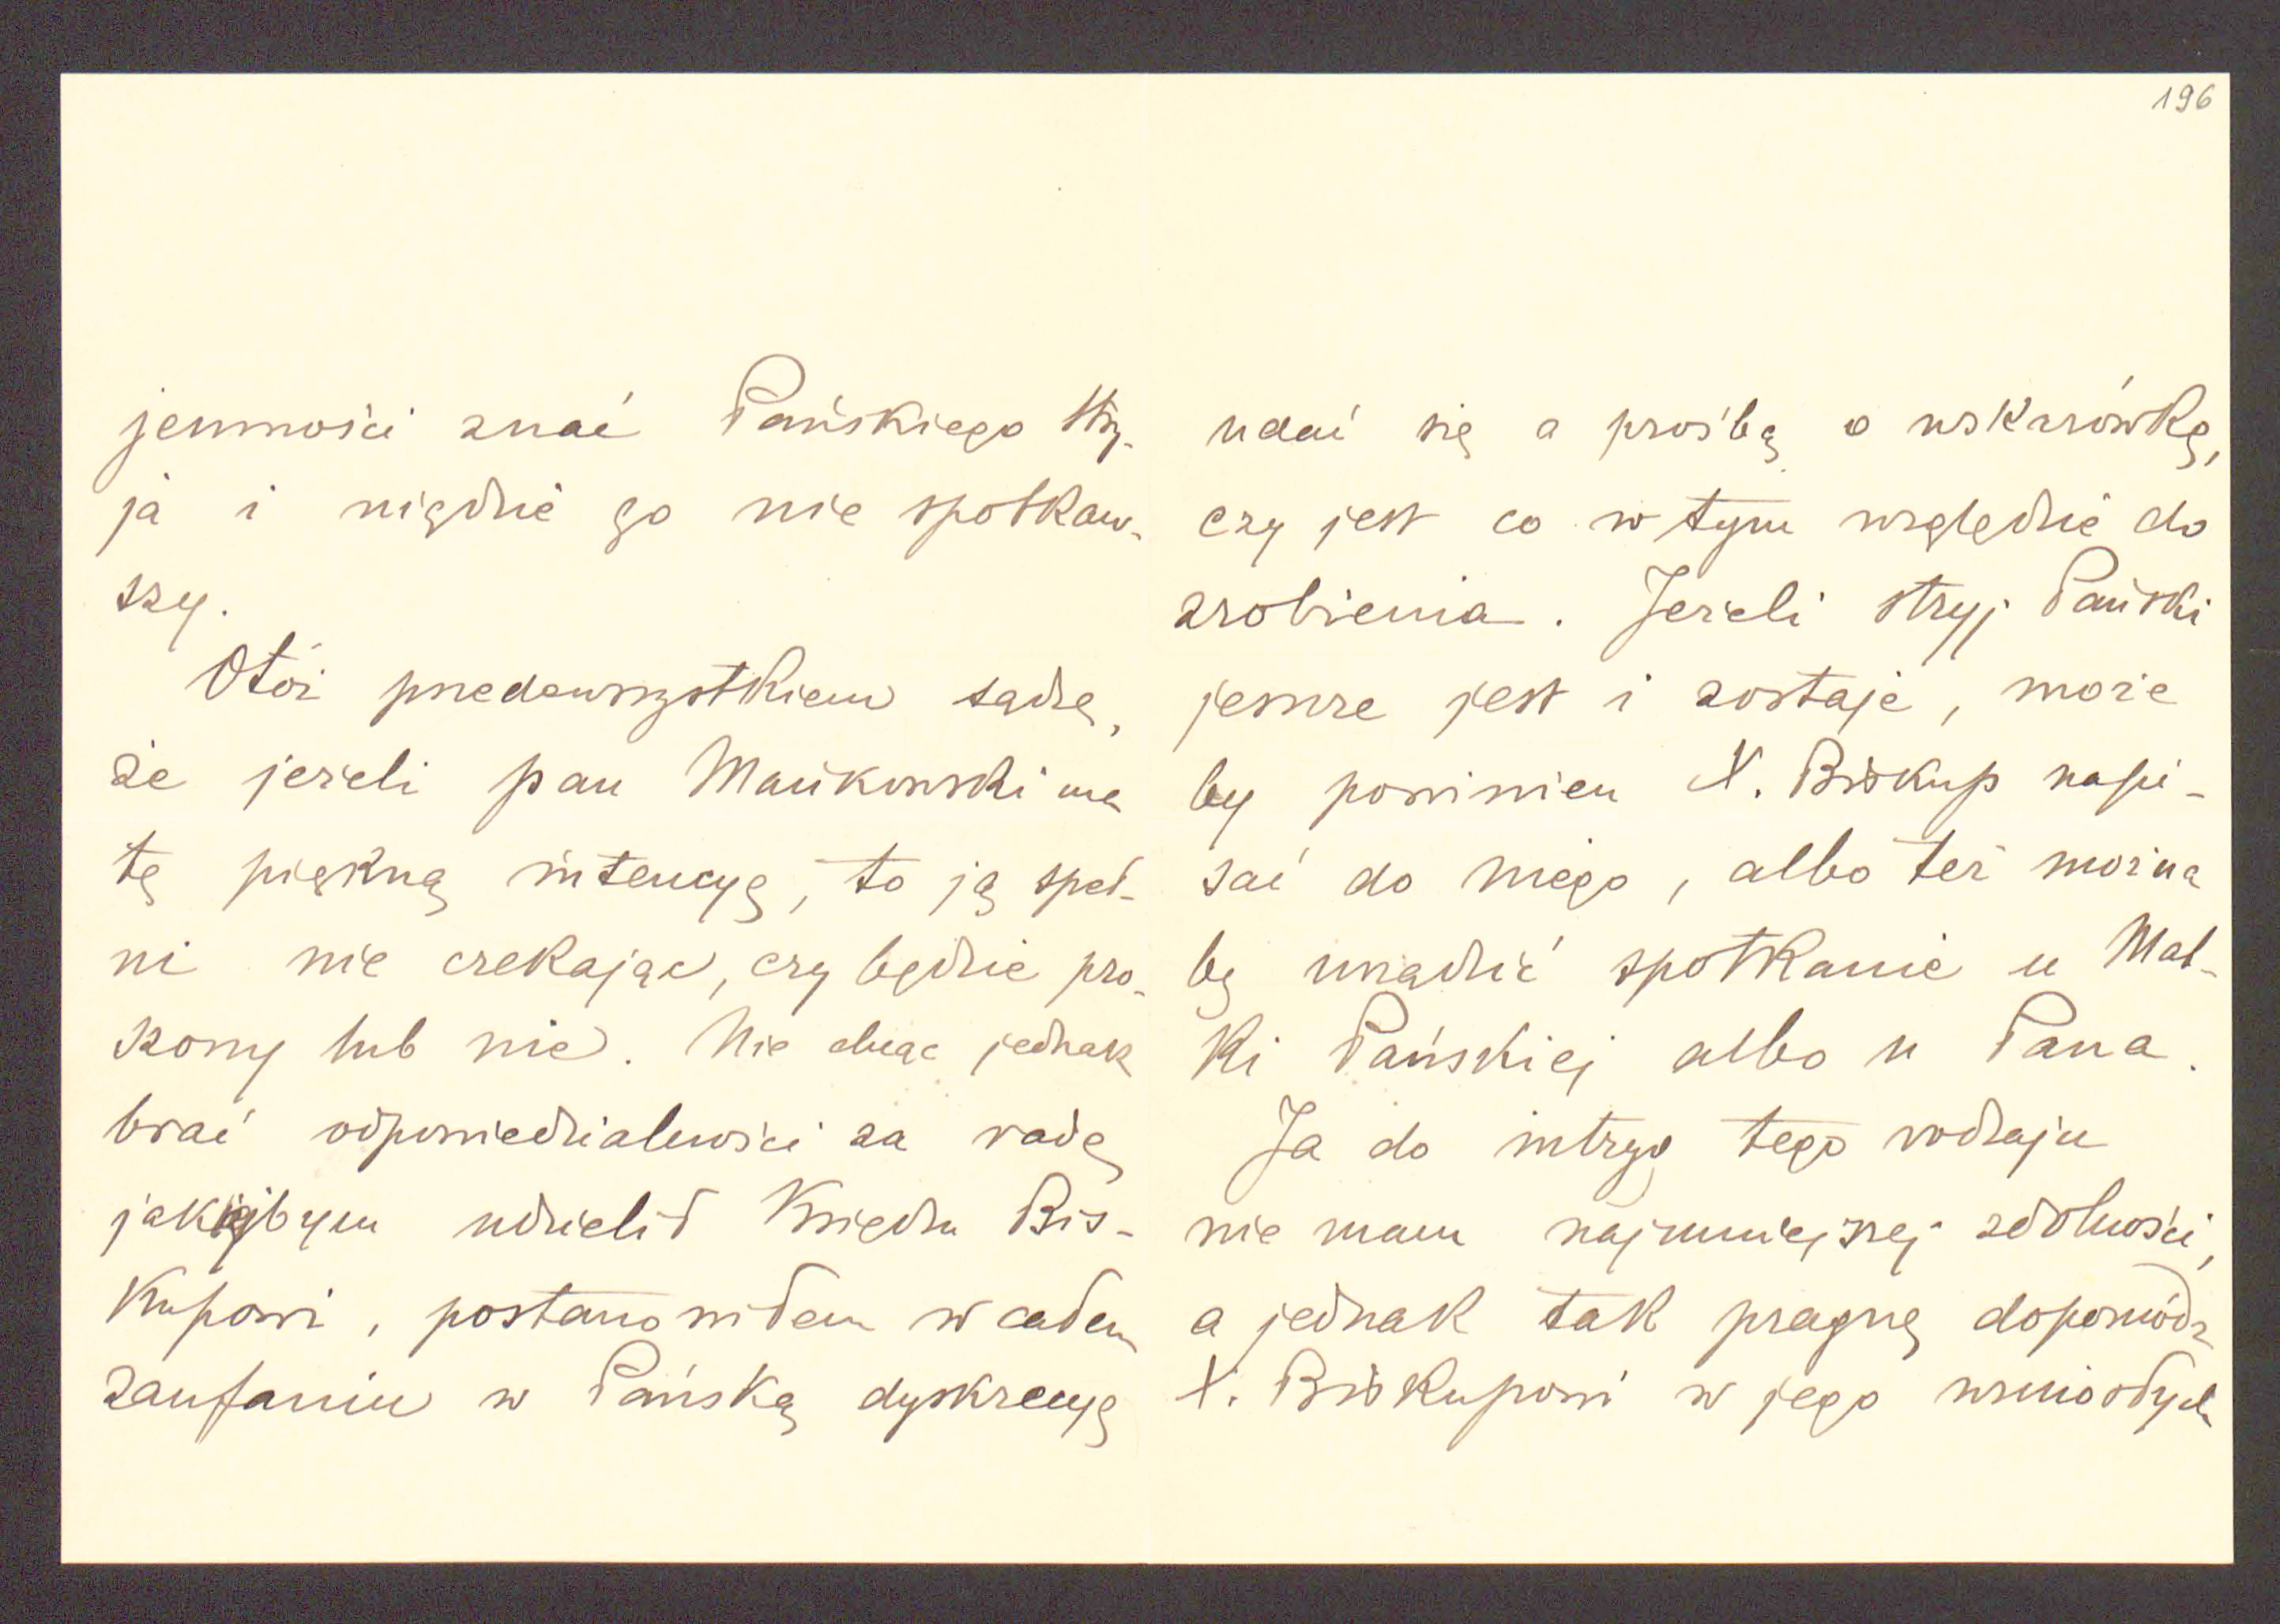 196
jemności znać Pańskiego stry-
ja i nigdzie go nie spotkaw-
szy.
Otóż przedewszystkiem sądzę,
że jeżeli pan Mańkowski ma
tę piękną intencyę, to ją speł-
ni nie czekając, czy będzie pro-
szony lub nie. Nie chcąc jednak
brać odpowiedzialności za radę
jakiejbym udzielił Księdzu Bis-
kupowi, postanowiłem w całem
zaufaniu w Pańską dyskrecyę
udać się z prośbą o wskazówkę,
czy jest co w tym względzie do
zrobienia. Jeżeli stryj Pański
jeszcze jest i zostaje, może
by powinien X. Biskup napi-
sać do niego, albo też można
by urządzić spotkanie u Mat-
ki Pańskiej albo u Pana.
Ja do intryg tego rodzaju
nie mam najmniejszej zdolności,
a jednak tak pragnę dopomódz
X. Biskupowi w jego wzniosłych